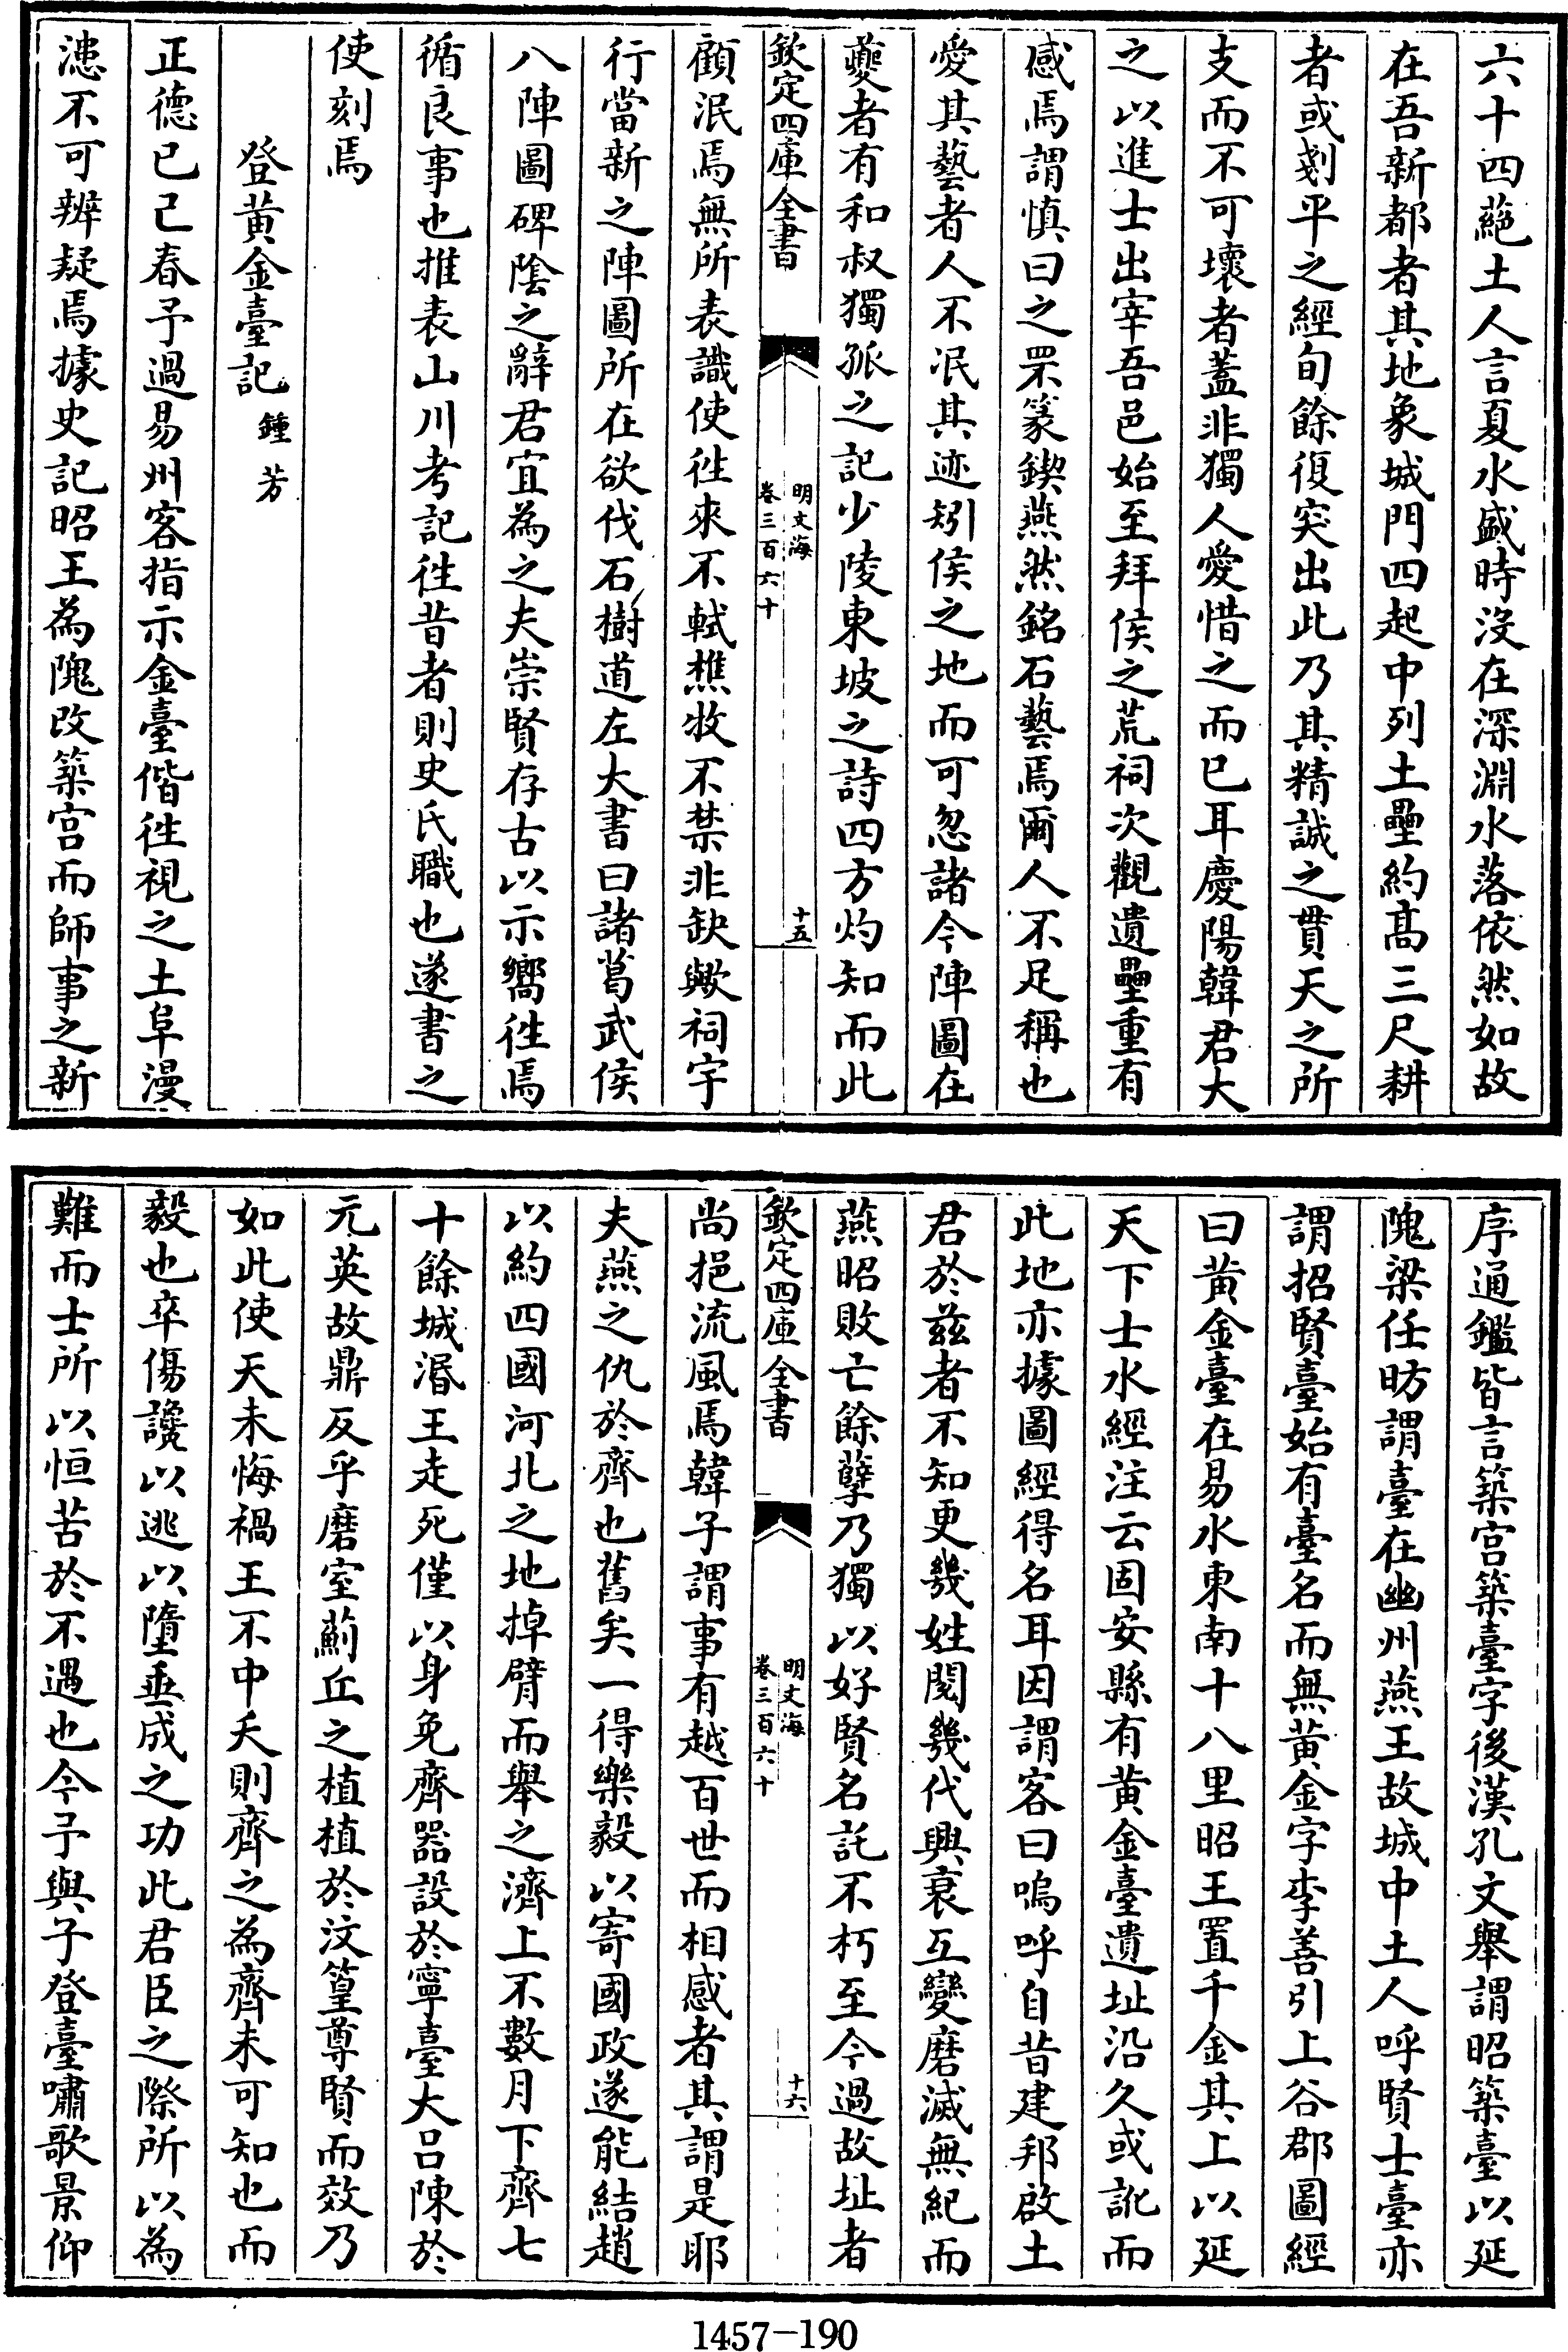 六十四蕝土人言夏水盛時沒在深淵水落依然如故
在吾新都者其地象城門四起中列土壘約髙三尺耕
者或剗平之經旬餘復突出此乃其精誠之貫天之所
支而不可壞者蓋非獨人愛惜之而已耳慶陽韓君大
之以進士出宰吾邑始至拜侯之荒祠次觀遺壘重有
感焉謂慎曰之罘篆鍥燕然銘石藝焉爾人不足稱也
愛其藝者人不泯其迹矧侯之地而可忽諸今陣圖在
夔者有和叔獨孤之記少陵東坡之詩四方灼知而此
欽定四庫全書
明文海
卷三百六十
十五
顧泯焉無所表識使徃來不軾樵牧不禁非缺歟祠宇
行當新之陣圖所在欲伐石樹道左大書曰諸葛武侯
八陣圖碑隂之辭君宜為之夫崇賢存古以示嚮徃焉
循良事也推表山川考記徃昔者則史氏職也遂書之
使刻焉
登黃金臺記 鍾芳
正德已己春予過易州客指示金臺偕徃視之土阜漫
漶不可辨疑焉據史記昭王為隗改築宫而師事之新
序通鑑皆言築宫築臺字後漢孔文舉謂昭築臺以延
隗梁任昉謂臺在幽州燕王故城中土人呼賢士臺亦
謂招賢臺始有臺名而無黃金字李善引上谷郡圖經
曰黃金臺在易水東南十八里昭王置千金其上以延
天下士水經注云固安縣有黃金臺遺址沿久或訛而
此地亦據圖經得名耳因謂客曰嗚呼自昔建邦啟土
君於兹者不知更幾姓閱幾代興衰互變磨滅無紀而
燕昭敗亡餘孽乃獨以好賢名託不朽至今過故址者
欽定四庫全書
明文海
卷三百六十
十六
尚挹流風焉韓子謂事有越百世而相感者其謂是耶
夫燕之仇於齊也舊矣一得樂毅以寄國政遂能結趙
以約四國河北之地掉臂而舉之濟上不數月下齊七
十餘城湣王走死僅以身免齊器設於寧臺大呂陳於
元英故鼎反乎磨室薊丘之植植於汶篁尊賢而效乃
如此使天未悔禍王不中夭則齊之為齊未可知也而
毅也卒傷讒以逃以墮垂成之功此君臣之際所以為
難而士所以恒苦於不遇也今予與子登臺嘯歌景仰
1457—190